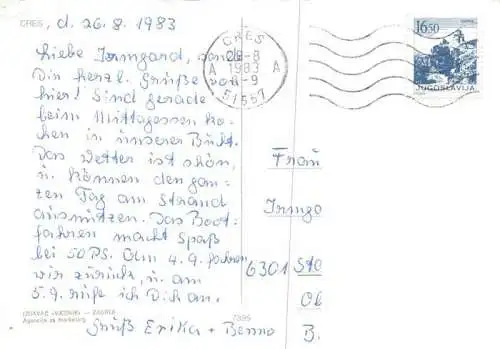 CRES, d. 26.8.1983
Liebe Irmgard,
Dir herzl. Grüße von
hier! Sind gerade
beim Mittagessen ko-
chen in unserer Bucht.
Das Wetter ist schön,
u. können den gan-
zen Tag am Strand
ausnützen. Das Boot-
fahren macht Spaß
bei 50 PS. Am 4.9. fahren
wir zurück, u. am
5.9. rufe ich Dich an.
Gruß Erika + Benno
IZDAVAČ «VJESNIK» — ZAGREB
Agencija za marketing
7395
CRES
1983
A A
51557
16.50
JUGOSLAVIJA
Frau
Irmga
6301 Sta
B.